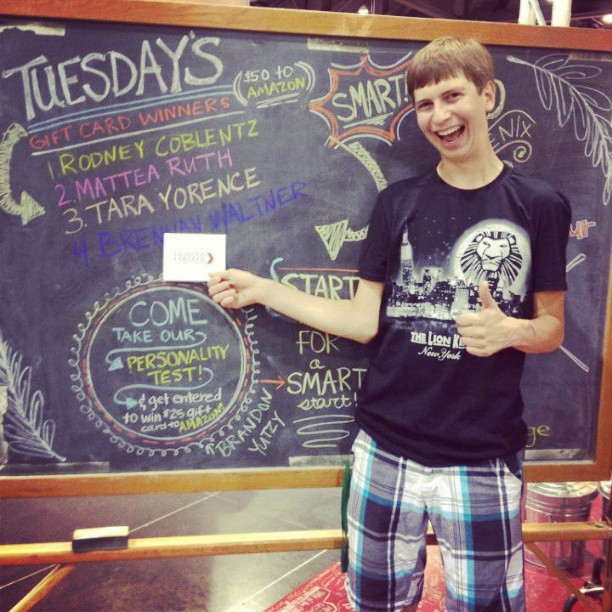 TUESDAY'S
($50 TO
AMAZON)
GIFT CARD WINNERS
1. RODNEY COBLENTZ
2. MATTEA RUTH
3. TARA YORENCE
4. BRENNAN WALTNER
SMART!
NIX
COME
TAKE OUR
PERSONALITY
TEST!
& get entered
to win $25 gift
card to AMAZON!
BRANDON
YUTZY
START
FOR
a
SMART
start!
THE LION KI
New York
ur
ge